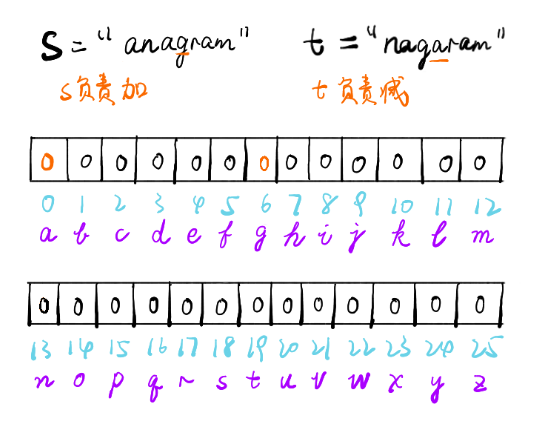 S = "anagram" t = "nagaram"
s负责加 t负责减
0 0 0 0 0 0 0 0 0 0 0 0 0
0 1 2 3 4 5 6 7 8 9 10 11 12
a b c d e f g h i j k l m
0 0 0 0 0 0 0 0 0 0 0 0 0
13 14 15 16 17 18 19 20 21 22 23 24 25
n o p q r s t u v w x y z